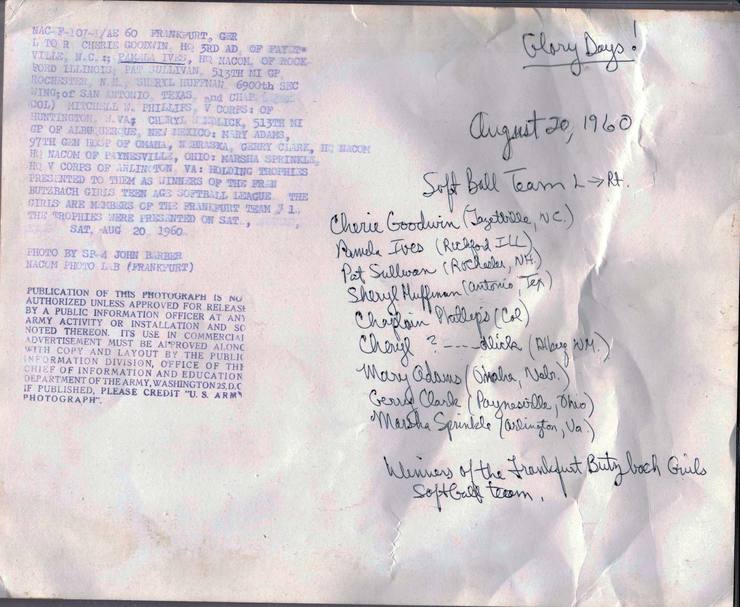 NAC-F-107-1/AE 60 FRANKFURT, GER
L TO R CHERIE GOODWIN, HQ 3RD AD, OF FAYET-
VILLE, N.C.; PAMALA IVES, HQ NACOM, OF ROCK-
FORD ILLINOIS; PAT SULLIVAN, 513TH MI GP,
ROCHESTER, N.H., SHERYL HUFFMAN, 6900th SEC
WING; of SAN ANTONIO, TEXAS, and
COL) MITCHELL W. PHILLIPS, V CORPS: OF
HUNTINGTON, W.VA; CHERYL 513TH MI
GP OF ALBUQUERQUE, NEW MEXICO: MARY ADAMS,
97TH GEN HOSP OF OMAHA, NEBRASKA, GERRY CLARK, HQ NACOM
HQ NACOM OF PAYNESVILLE, OHIO: MARSHA SPRINKLE,
HQ V CORPS OF ARLINGTON, VA: HOLDING TROPHIES
PRESENTED TO THEM AS WINNERS OF THE
BUTZBACH GIRLS TEEN AGE SOFTBALL LEAGUE. THE
GIRLS ARE MEMBERS OF THE FRANKFURT TEAM 1.
THE TROPHIES WERE PRESENTED ON SAT.,
SAT, AUG 20 1960
PHOTO BY SP-4 JOHN BARBER
NACOM PHOTO LAB (FRANKFURT)
PUBLICATION OF THIS PHOTOGRAPH IS NO
AUTHORIZED UNLESS APPROVED FOR RELEASE
BY A PUBLIC INFORMATION OFFICER AT ANY
ARMY ACTIVITY OR INSTALLATION AND SO
NOTED THEREON. ITS USE IN COMMERCIAL
ADVERTISEMENT MUST BE APPROVED ALONG
WITH COPY AND LAYOUT BY THE PUBLIC
INFORMATION DIVISION, OFFICE OF THE
CHIEF OF INFORMATION AND EDUCATION
DEPARTMENT OF THE ARMY, WASHINGTON 25, D.C
IF PUBLISHED, PLEASE CREDIT "U. S. ARMY
PHOTOGRAPH".
Glory Days!
August 20, 1960
Soft Ball Team L → Rt.
Cherie Goodwin (Fayetteville, N.C.)
Pamela Ives (Rickford ILL)
Pat Sullivan (Rochester, NH)
Sheryl Huffman (Antonio Tex)
Chaplain Phillips (Col)
Cheryl ? ----dlick (Albuq N.M.)
Mary Adams (Omaha, Nebr.)
Gerry Clark (Paynesville, Ohio)
Marsha Sprinkle (Arlington, Va.)
Winners of the Frankfurt Butzbach Girls
Softball team.